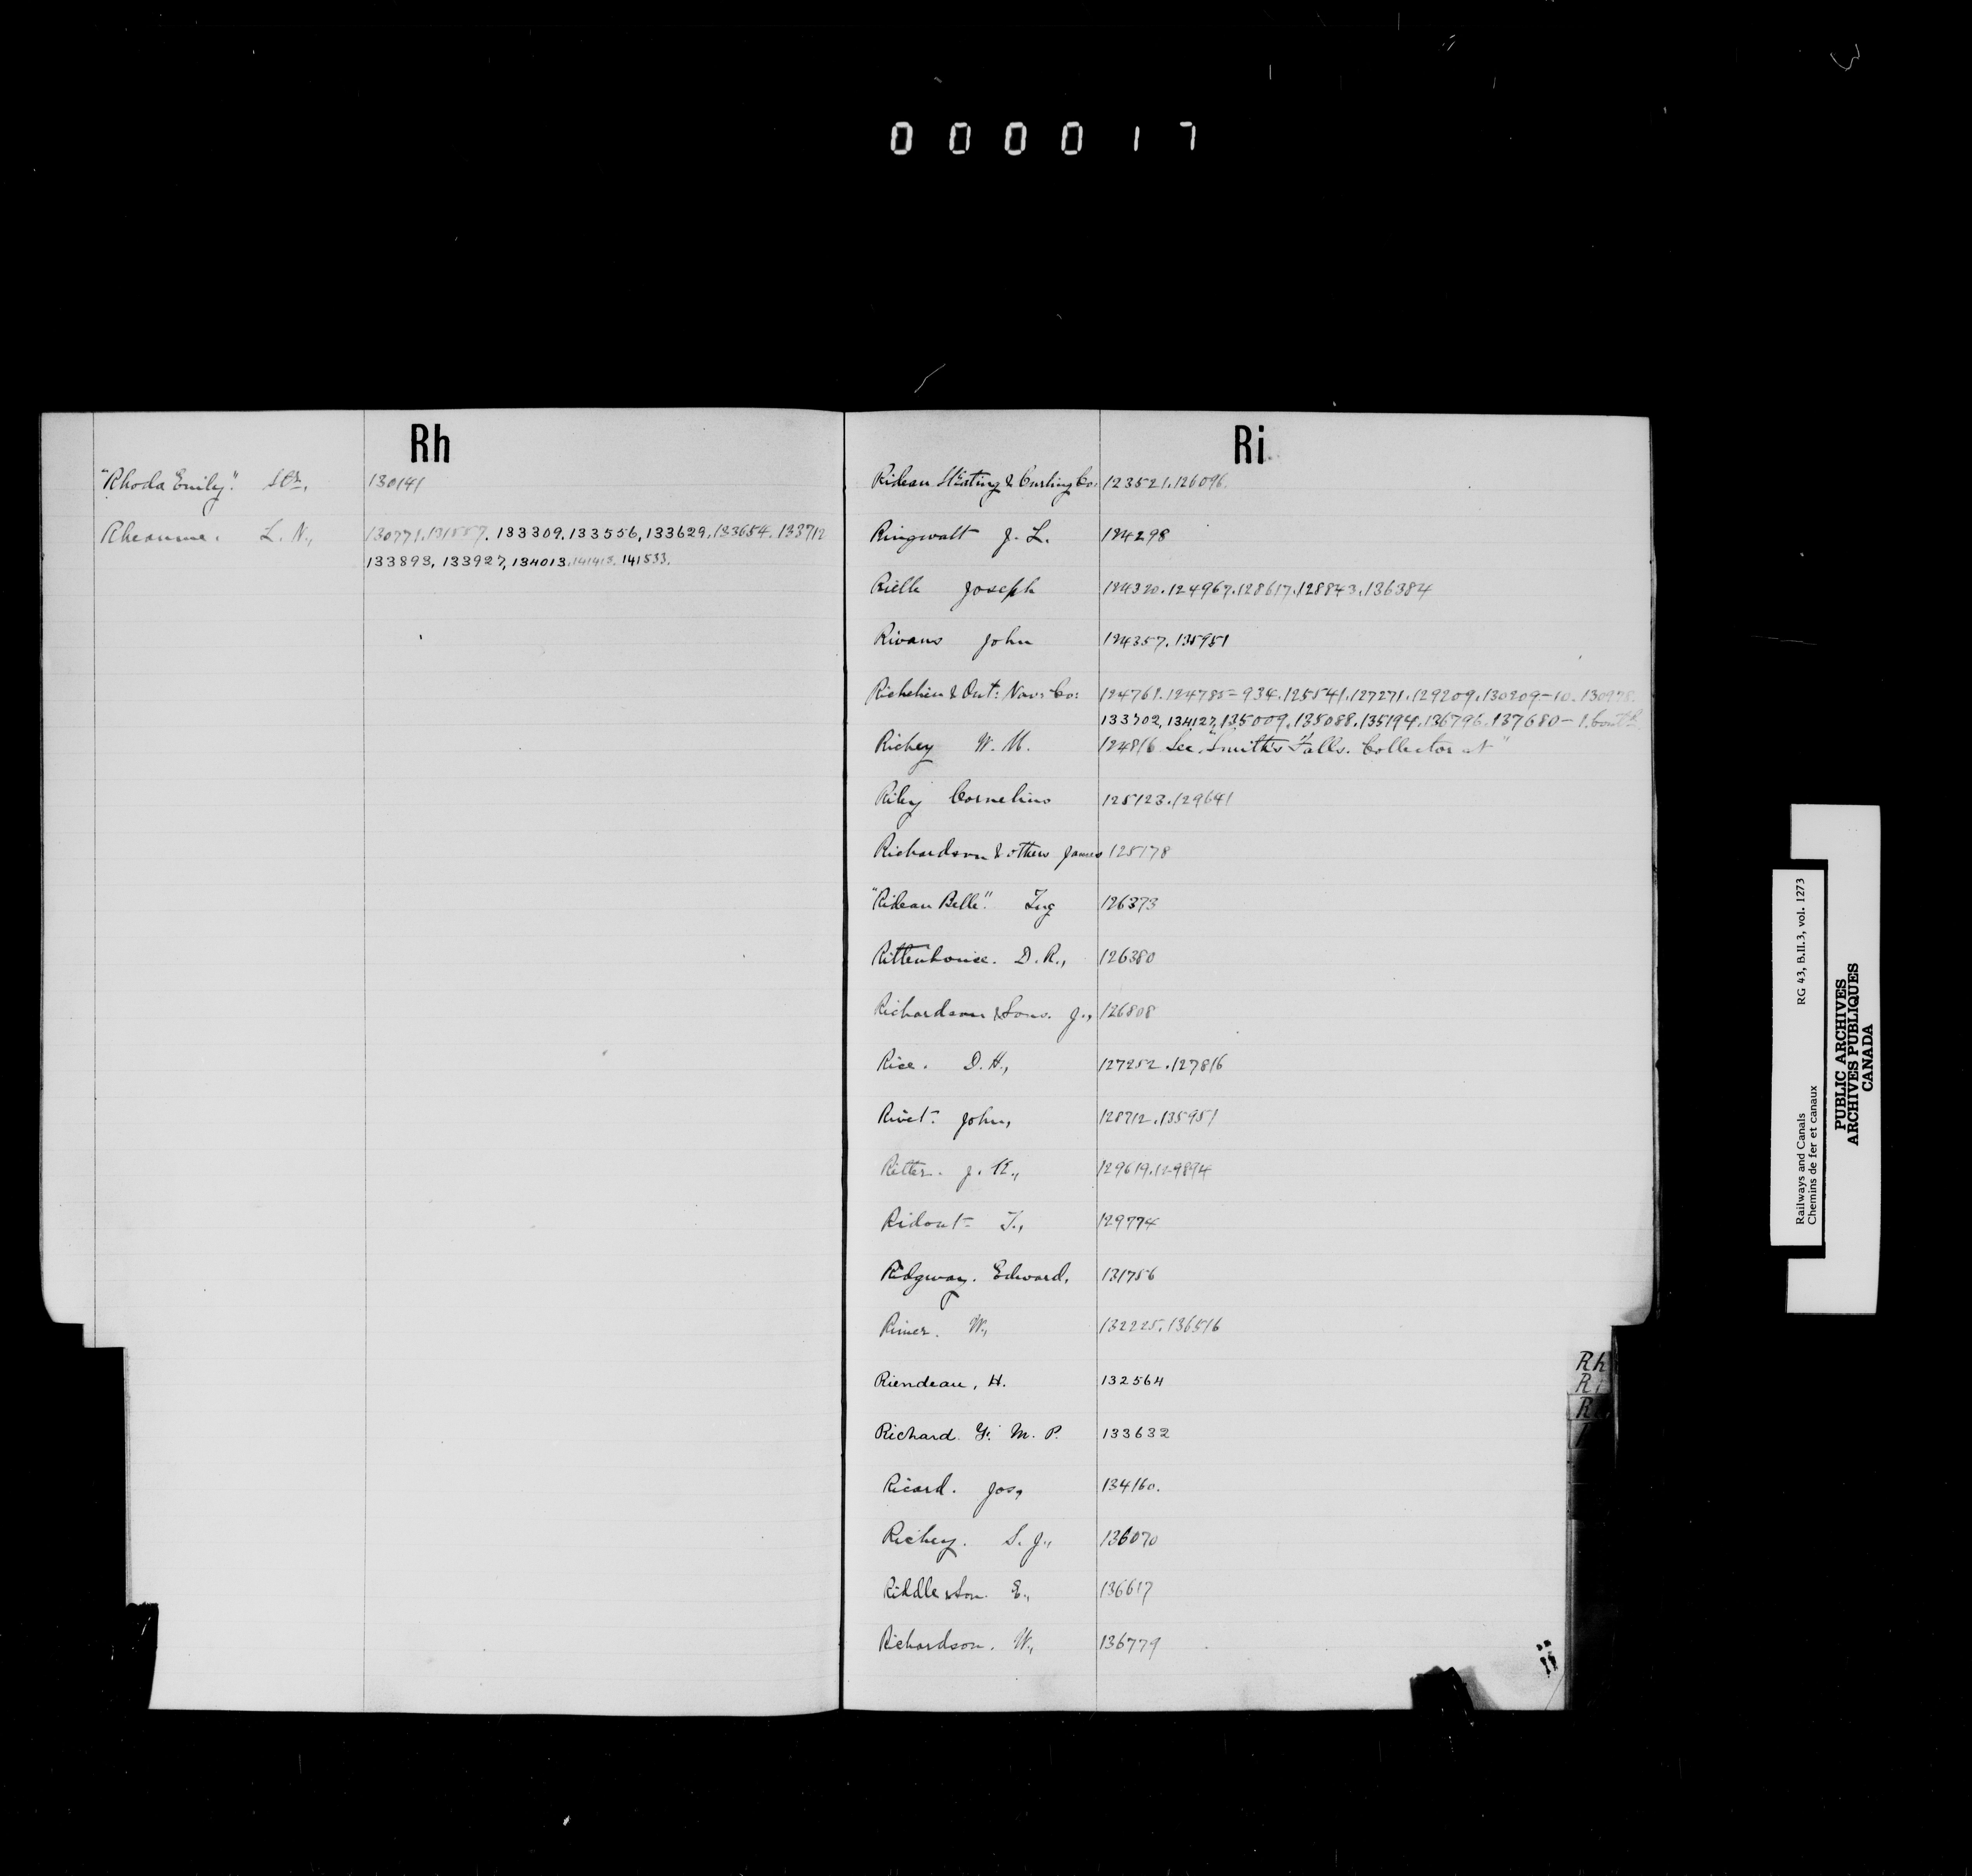 000017
Rh
"Rhoda Emily." Str, 130141
Rheaume. L. N., 130771.131557. 133309.133556,133629,133654.133712
133893, 133927, 134013.141418. 141533.
Ri
Rideau Skating & Curling Co: 123521.126096.
Ringwalt J. L. 124298
Rielle Joseph 124320.124967.128617.128843.136384
Rivans John 124357.135951
Richelieu & Ont: Nav: Co: 124761.124785-934.125541.127271.129209.130209-10.130978.
133702, 134127, 135009.135088.135194.136796.137680-1.
Richey W. H. 124816 See "Smith's Falls. Collector at"
Riley Cornelius 125123.129641
Richardson & others James 125178
"Rideau Belle." Tug 126373
Rittenhouse. D. R., 126380
Richardson & Sons. J., 126808
Rice. D. H., 127252.127816
Rivet. John, 128712.135951
Ritter. J. K., 129619.129894
Ridout T., 129774
Ridgway. Edward, 131756
Rimer. W., 132225.136516
Riendeau, H. 132564
Richard. M. P. 133632
Ricard. Jos, 134160.
Richey. S. J., 136070
Riddle & Son. E., 136617
Richardson. W., 136779
Rh
Ri
R
Railways and Canals RG 43, B.II.3, vol. 1273
Chemins de fer et canaux
PUBLIC ARCHIVES
ARCHIVES PUBLIQUES
CANADA